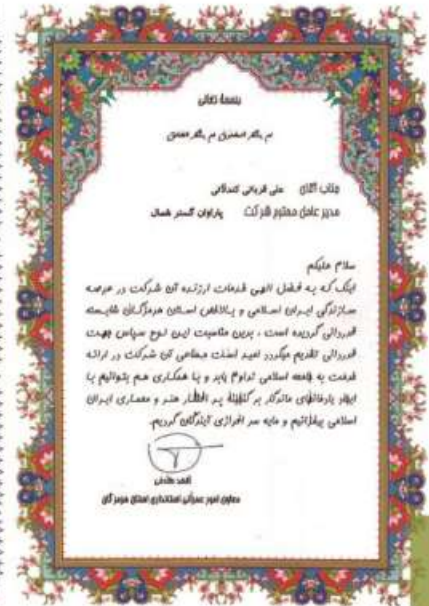 بسمه تعالی
من لم یشکر المخلوق لم یشکر الخالق
جناب آقای علی قربانی کندلاتی
مدیر عامل محترم شرکت پاراوان گستر شمال
سلام علیکم
اینک که به فضل الهی خدمات ارزنده آن شرکت در عرصه
سازندگی ایران اسلامی و بالاخص استان هرمزگان شایسته
قدردانی گردیده است ، بدین مناسبت این لوح سپاس جهت
قدردانی تقدیم میگردد امید است مساعی آن شرکت در ارائه
خدمت به جامعه اسلامی تداوم یابد و با همکاری هم بتوانیم با
ایجاد یادمانهای ماندگار بر گنجینه پر افتخار هنر و معماری ایران
اسلامی بیفزائیم و مایه سر افرازی آیندگان گردیم.
معاون امور عمرانی استانداری استان هرمزگان